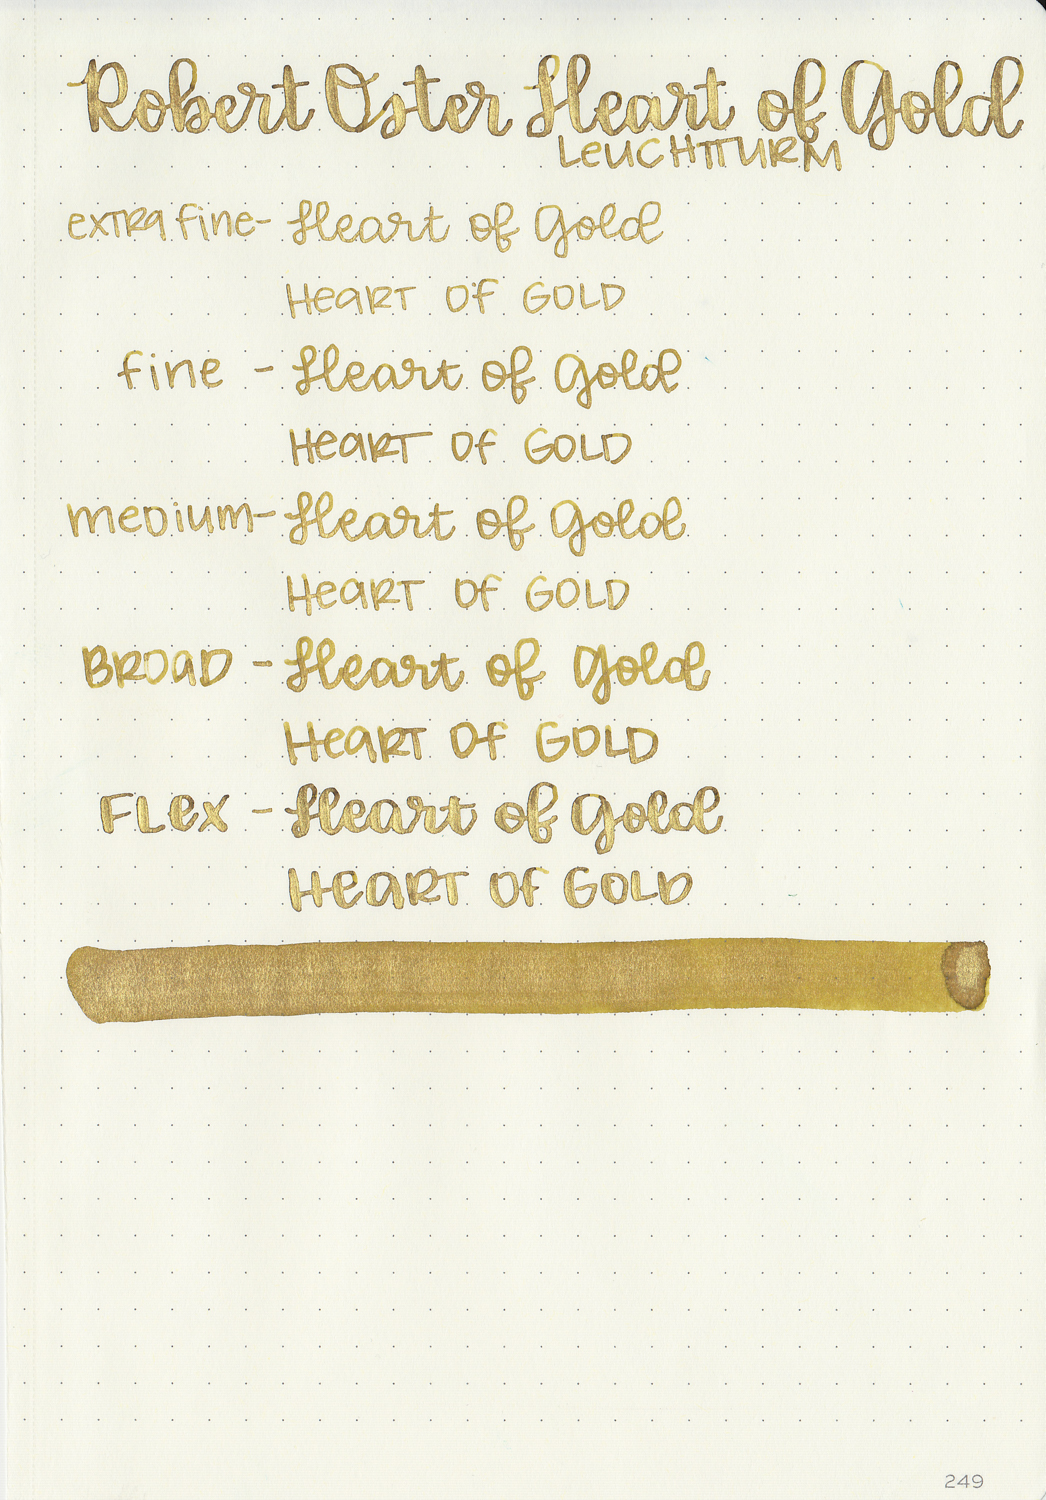 Robert Oster Heart of Gold
LEUCHTTURM
extra fine- Heart of Gold
HeaRT Of GOLD
fine - Heart of Gold
HeaRT Of GOLD
medium- Heart of Gold
HeaRT Of GOLD
BROAD - Heart of Gold
HeaRT Of GOLD
FLex - Heart of Gold
HeaRT Of GOLD
249